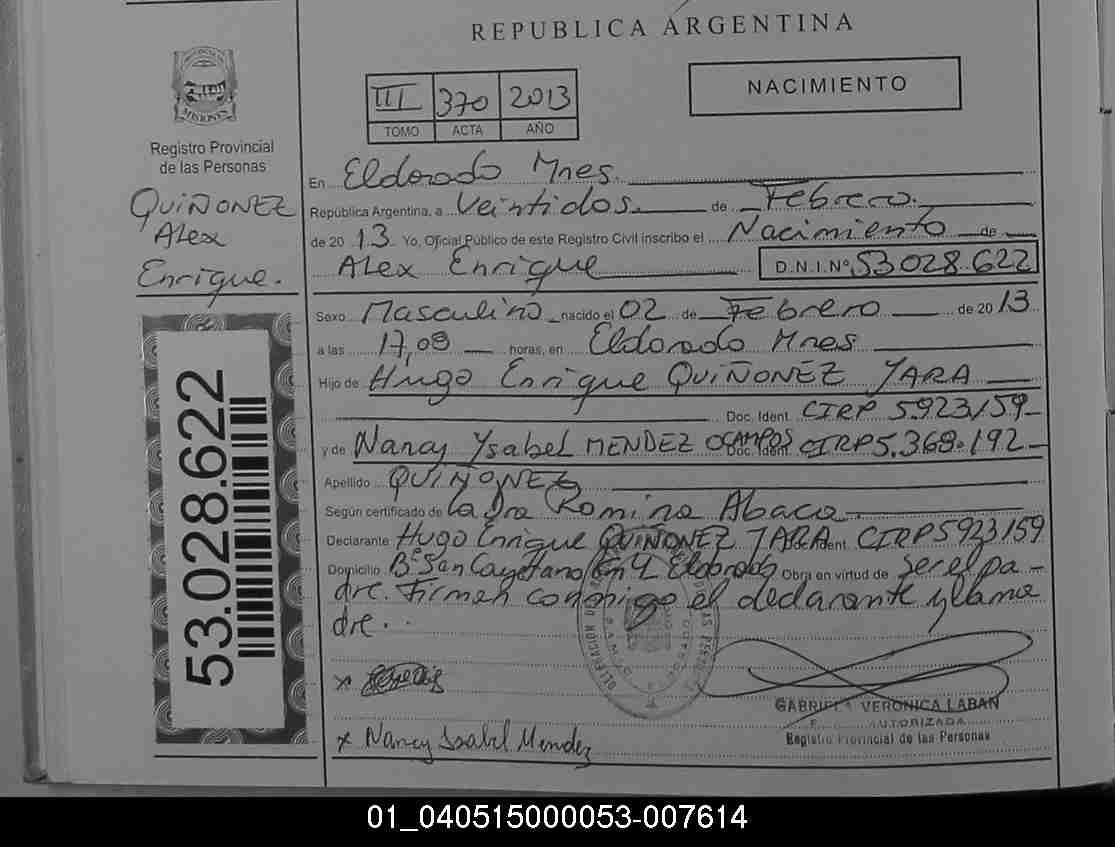 REPUBLICA ARGENTINA
MISIONES
Registro Provincial
de las Personas
QUIÑONEZ
Alex
Enrique.
53.028.622
III 370 2013
TOMO ACTA AÑO
NACIMIENTO
En Eldorado Mnes.
República Argentina, a Veintidos de Febrero.
de 20 13 Yo, Oficial Público de este Registro Civil inscribo el Nacimiento de
Alex Enrique D.N.I.Nº 53028.622
Sexo Masculino nacido el 02 de Febrero de 20 13
a las 17,09 horas, en Eldorado Mnes
Hijo de Hugo Enrique QUIÑONEZ JARA
Doc. Ident. CIRP 5.923159
y de Nancy Ysabel MENDEZ OCAMPOS Doc. Ident. CIRP 5.368.192
Apellido QUIÑONEZ
Según certificado de la Dra Romina Abaca
Declarante Hugo Enrique QUIÑONEZ JARA Doc. Ident. CIRP 5923159
Domicilio Bº San Cayetano Km 4 Eldorado Obra en virtud de ser el pa-
dre. Firman conmigo el declarante y la ma
dre..
x
x Nancy Isabel Mendez
GABRIELA VERONICA LABAN
AUTORIZADA
Registro Provincial de las Personas
01_040515000053-007614